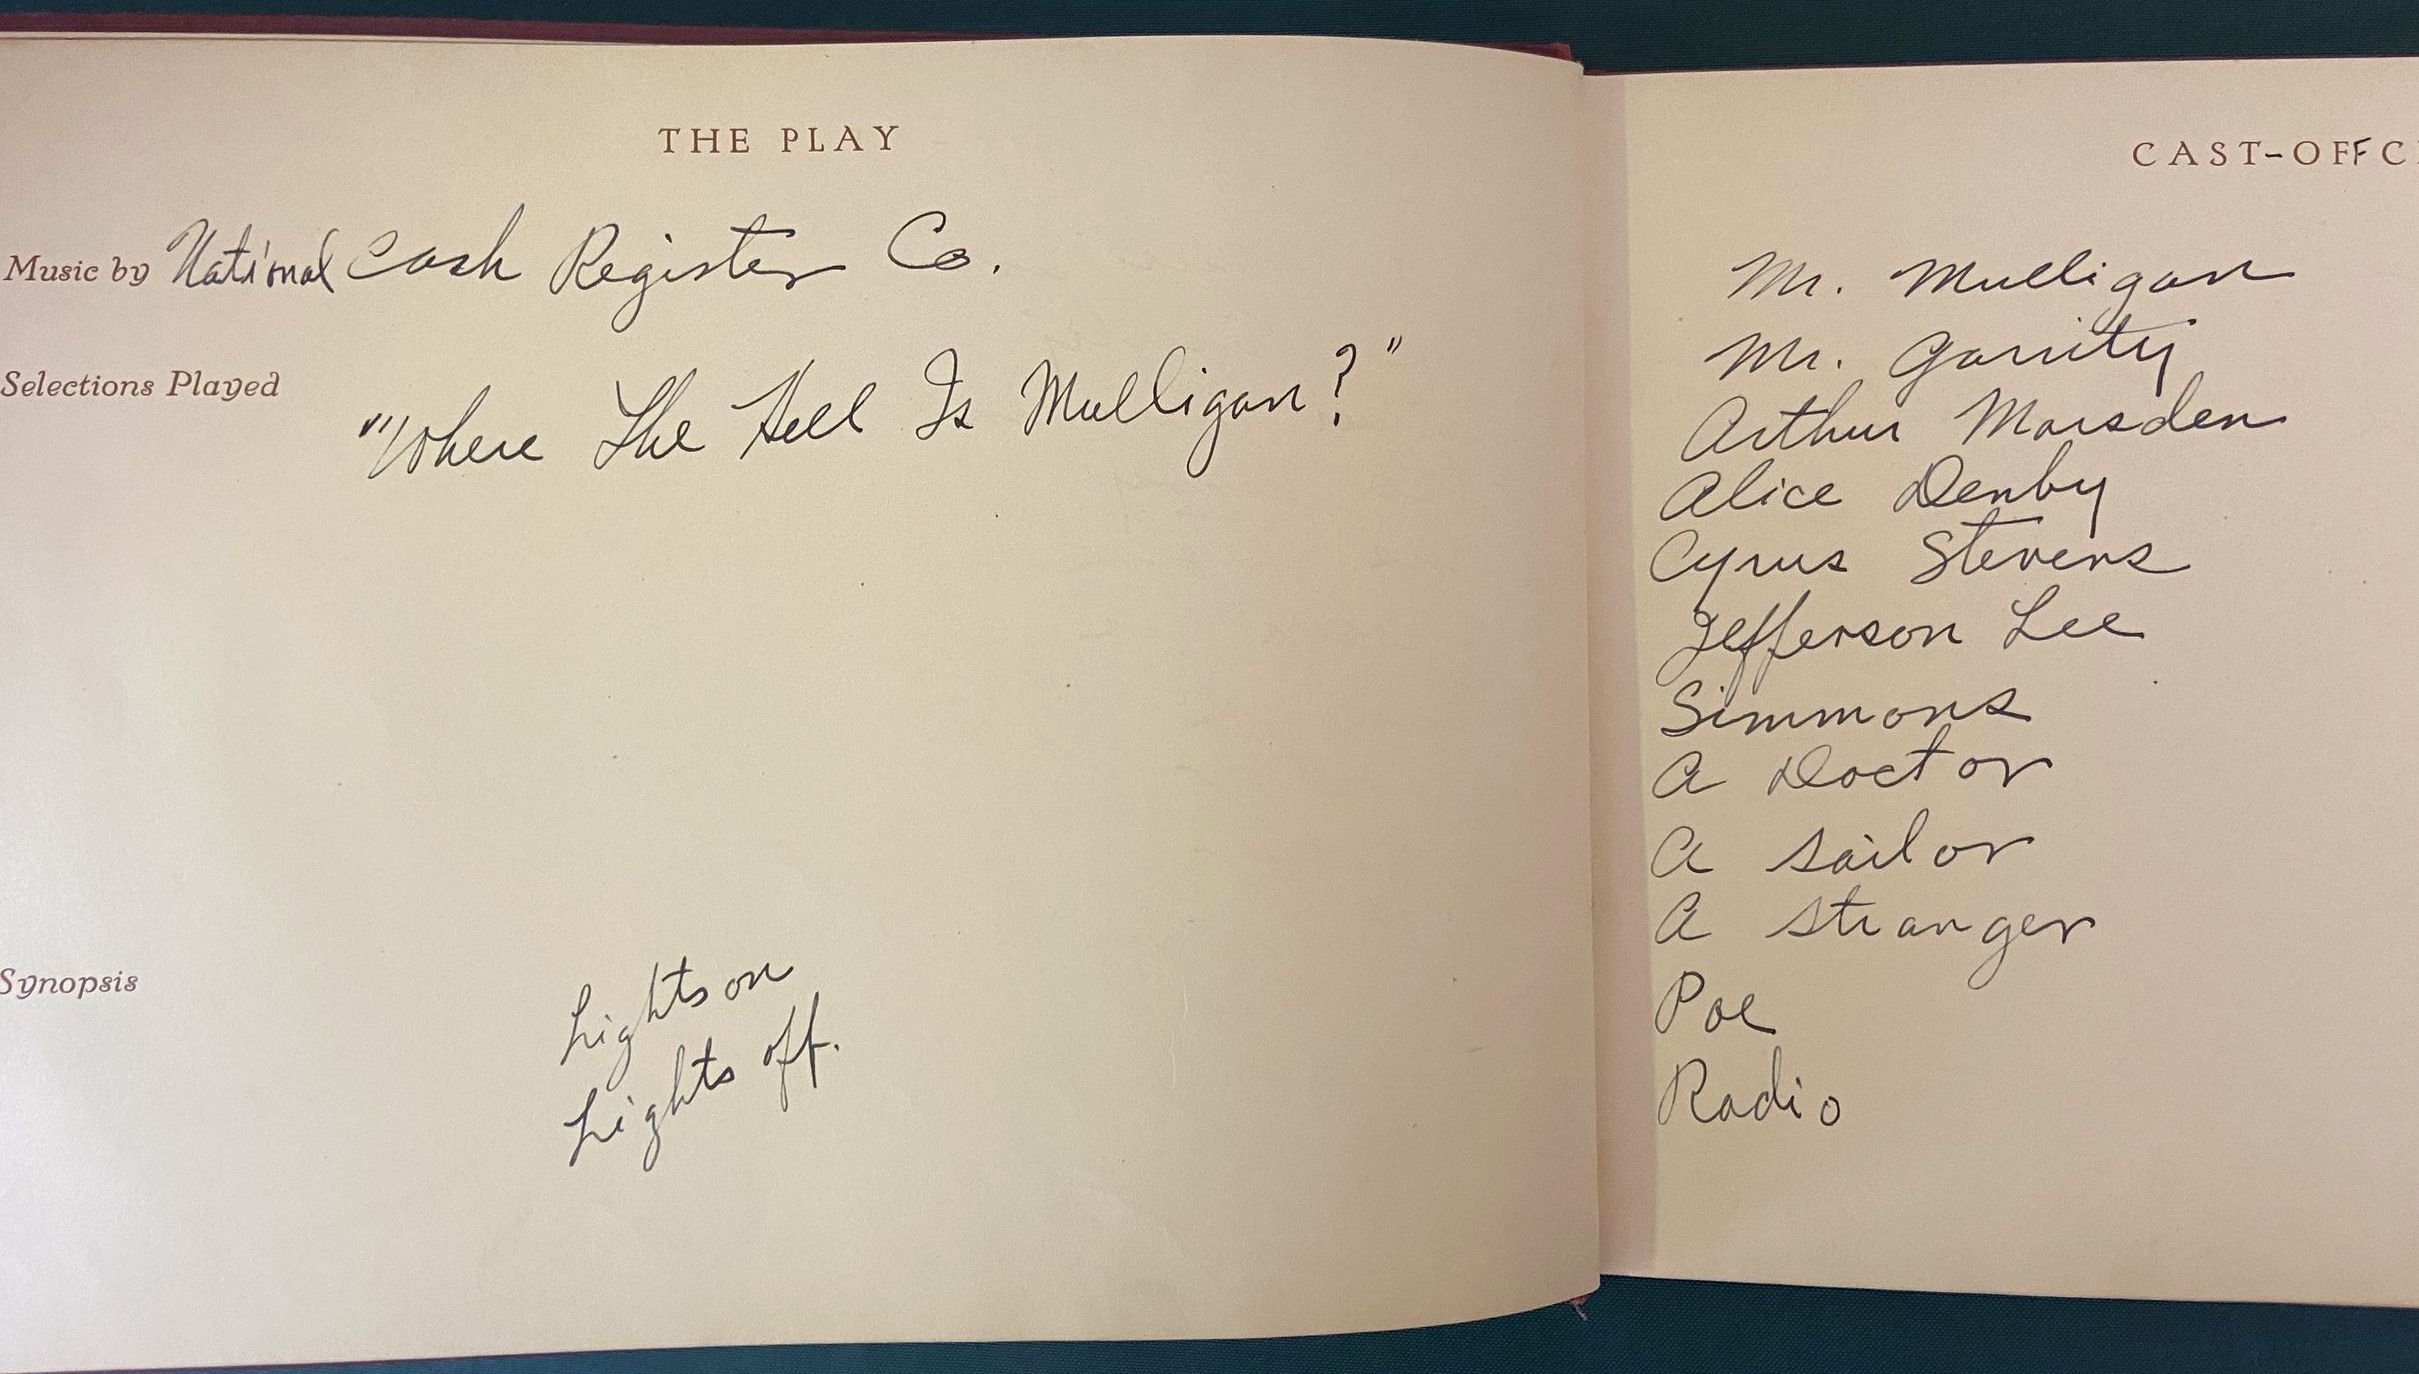 THE PLAY
Music by National Cash Register Co.
Selections Played
"Where The Hell Is Mulligan?"
Synopsis
Lights on
Lights off.
CAST-OFF C
Mr. Mulligan
Mr. Garrity
Arthur Marsden
Alice Denby
Cyrus Stevens
Jefferson Lee
Simmons
A Doctor
A sailor
A stranger
Poe
Radio